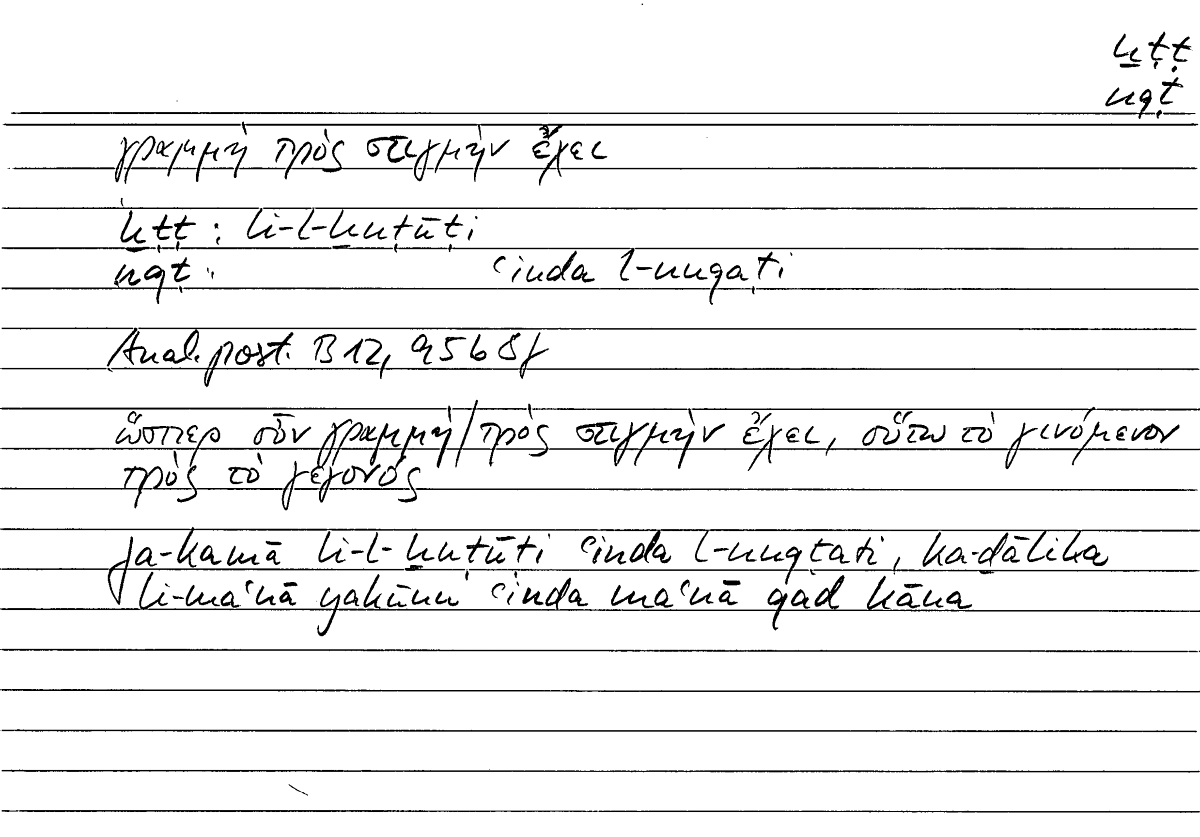 ḫṭṭ
nqṭ
γραμμὴ πρὸς στιγμὴν ἔχει
ḫṭṭ : li-l-ḫuṭūṭi
nqṭ : ʿinda l-nuqaṭi
Anal. post. B 12, 95b 8f
ὥσπερ οὖν γραμμὴ/πρὸς στιγμὴν ἔχει, οὕτω τὸ γινόμενον
πρὸς τὸ γεγονός
fa-kamā li-l-ḫuṭūṭi ʿinda l-nuqṭati, ka-ḏālika
li-maʿnā yakūnu ʿinda maʿnā qad kāna